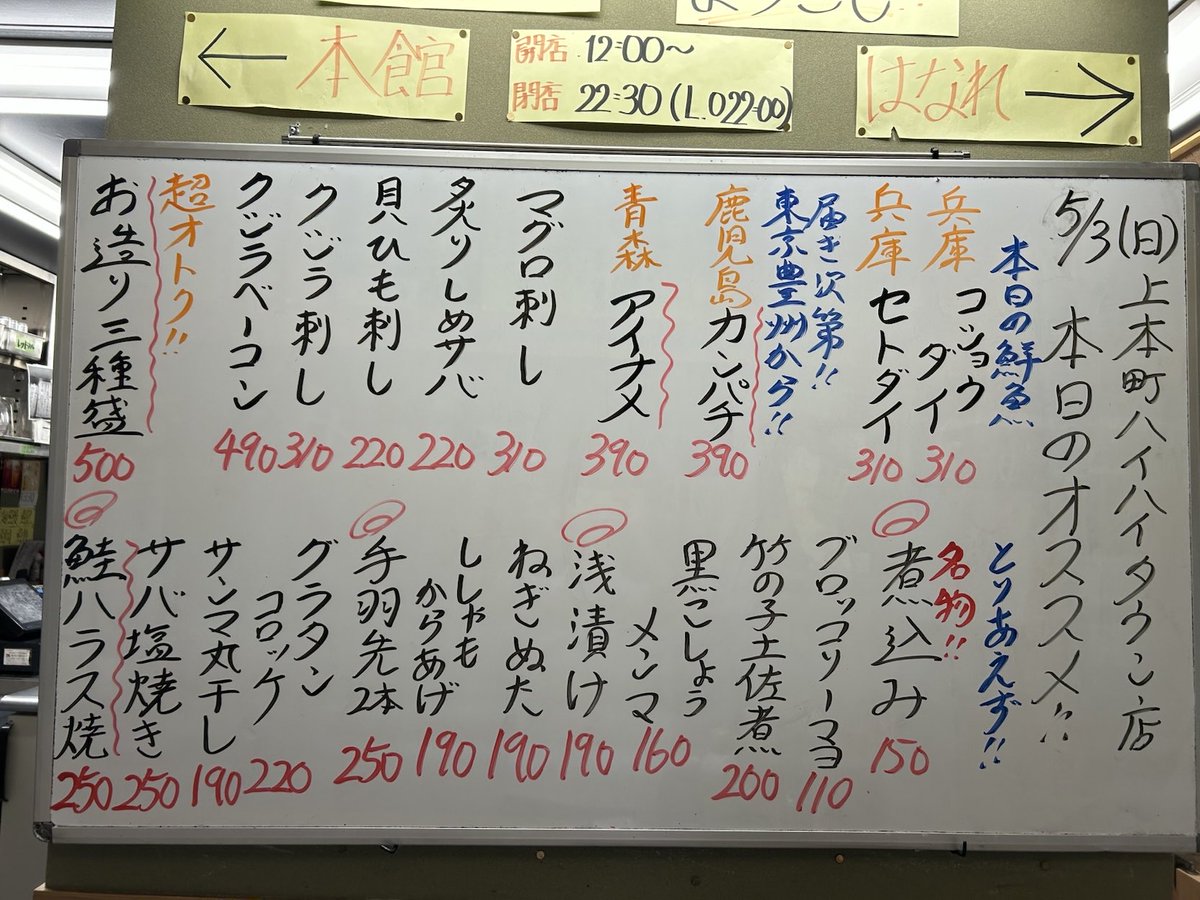 ようこし
← 本館
開店 12:00〜
閉店 22:30(L.O22:00)
はなれ →
5/3(日)上本町ハイハイタウン店
本日のオススメ!!
本日の鮮魚
兵庫 コショウダイ 310
兵庫 セトダイ 310
届き次第!!
東京豊州から!!
鹿児島 カンパチ 390
青森 アイナメ 390
マグロ刺し 310
炙りしめサバ 220
貝ひも刺し 220
クジラ刺し 310
クジラベーコン 490
超オトク!!
お造り三種盛 500
とりあえず!!
名物!!
煮込み 150
ブロッコリーマヨ 110
竹の子土佐煮 200
黒こしょうメンマ 160
浅漬け 190
ねぎぬた 190
ししゃもからあげ 190
手羽先2本 250
グラタンコロッケ 220
サンマ丸干し 190
サバ塩焼き 250
鮭ハラス焼 250